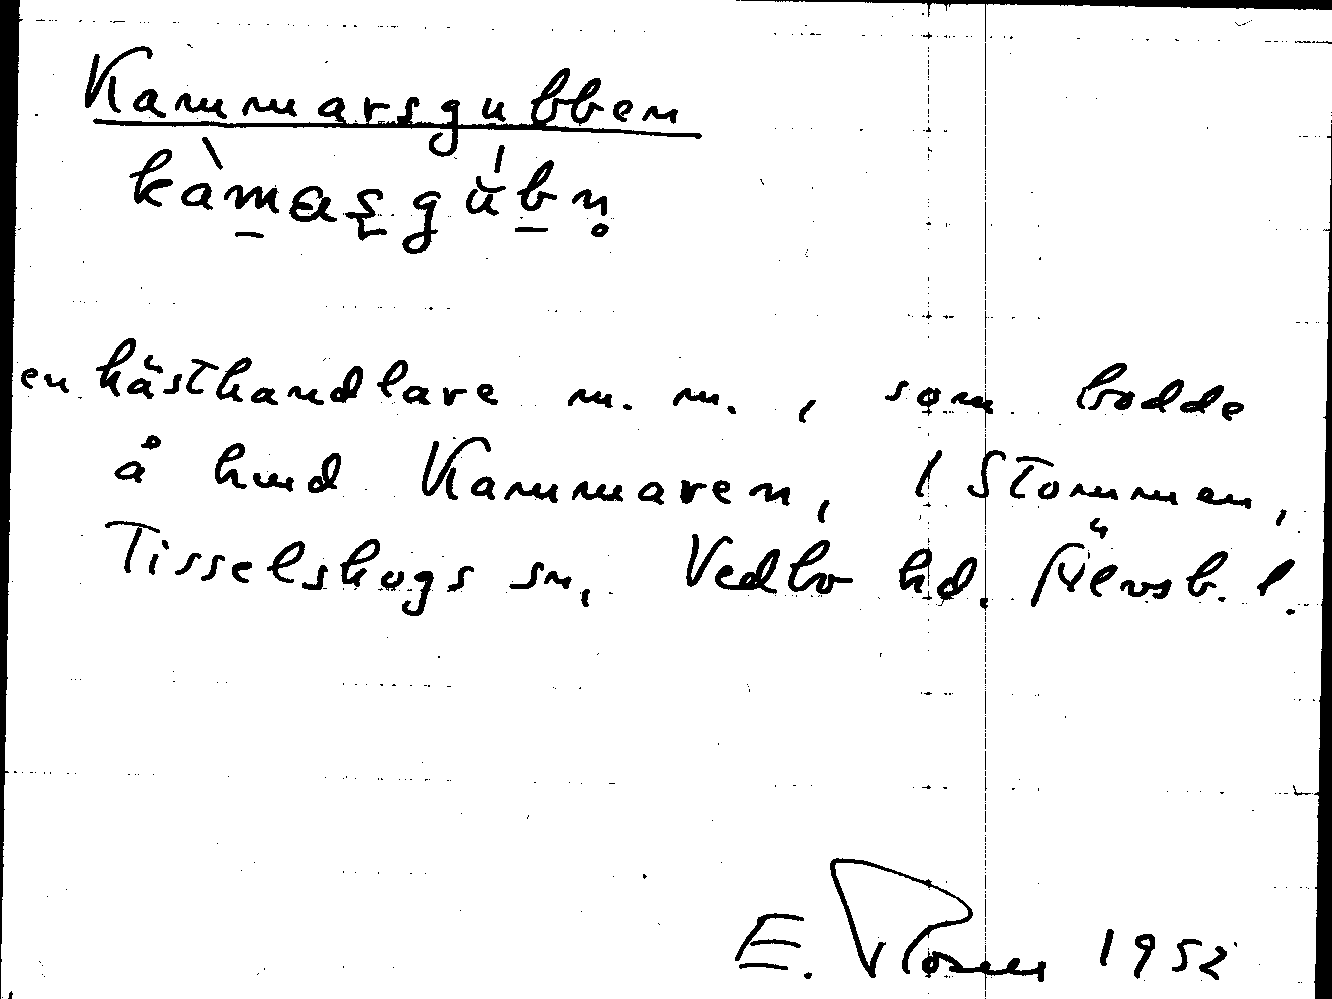 Kammarsgubben
kàmaʂgúbn̥
en hästhandlare m.m., som bodde
å hmd Kammaren, i Stommen,
Tisselskogs sn, Vedbo hd. Älvsb. l.
E. 1952